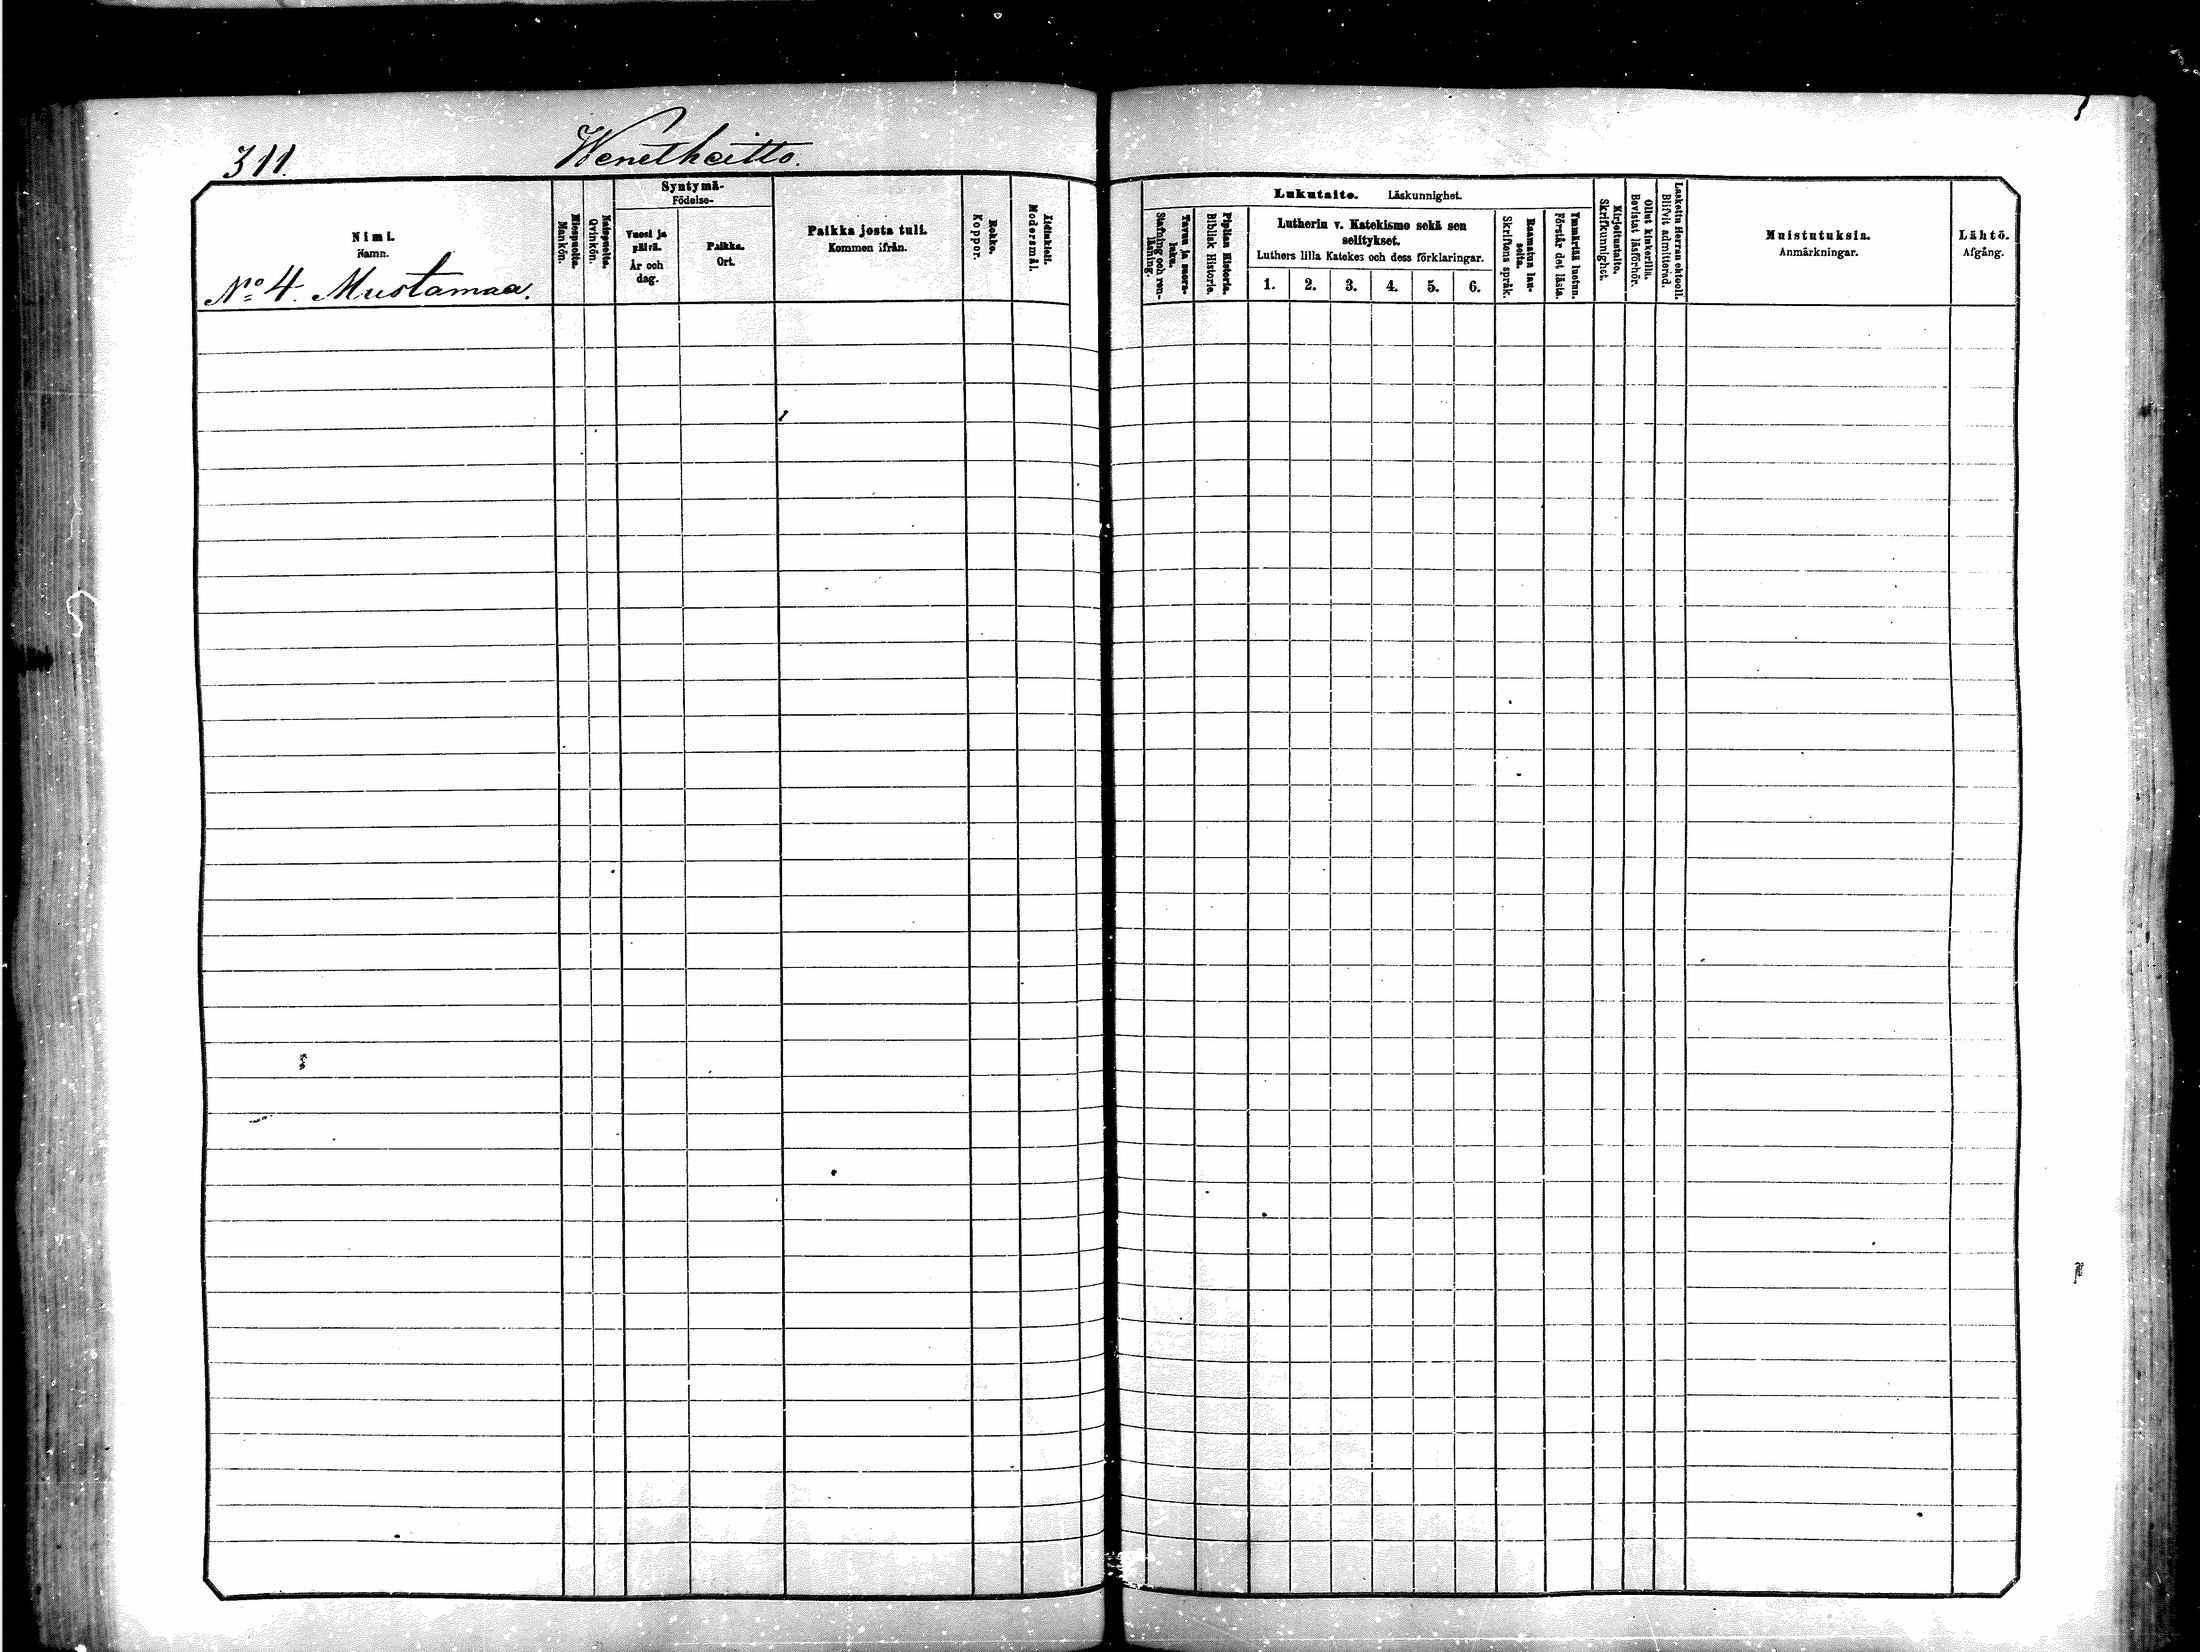 311. Wenetheitto.
Nimi.
Namn.
No 4. Mustamaa.
Miespuolia.
Mankön.
Naispuolia.
Qvinkön.
Syntymä-
Födelse-
Vuosi ja päivä.
År och dag.
Paikka.
Ort.
Paikka josta tuli.
Kommen ifrån.
Rokko.
Koppor.
Äidinkieli.
Modersmål.
Lukutaito. Läskunnighet.
Tavuu ja suora-luku.
Stafning och ren-läsning.
Piplian Historia.
Biblisk Historie.
Lutherin v. Katekismo sekä sen
selitykset.
Luthers lilla Katekes och dess förklaringar.
1. 2. 3. 4. 5. 6.
Raamatun lau-seita.
Skriftens språk.
Ymmärtää luetun.
Förstår det lästa.
Kirjoitustaito.
Skrifkunnighet.
Ollut kinkerillä.
Bevistat läsförhör.
Laskettu Herran ehtooll.
Blifvit admitterad.
Muistutuksia.
Anmärkningar.
Lähtö.
Afgång.